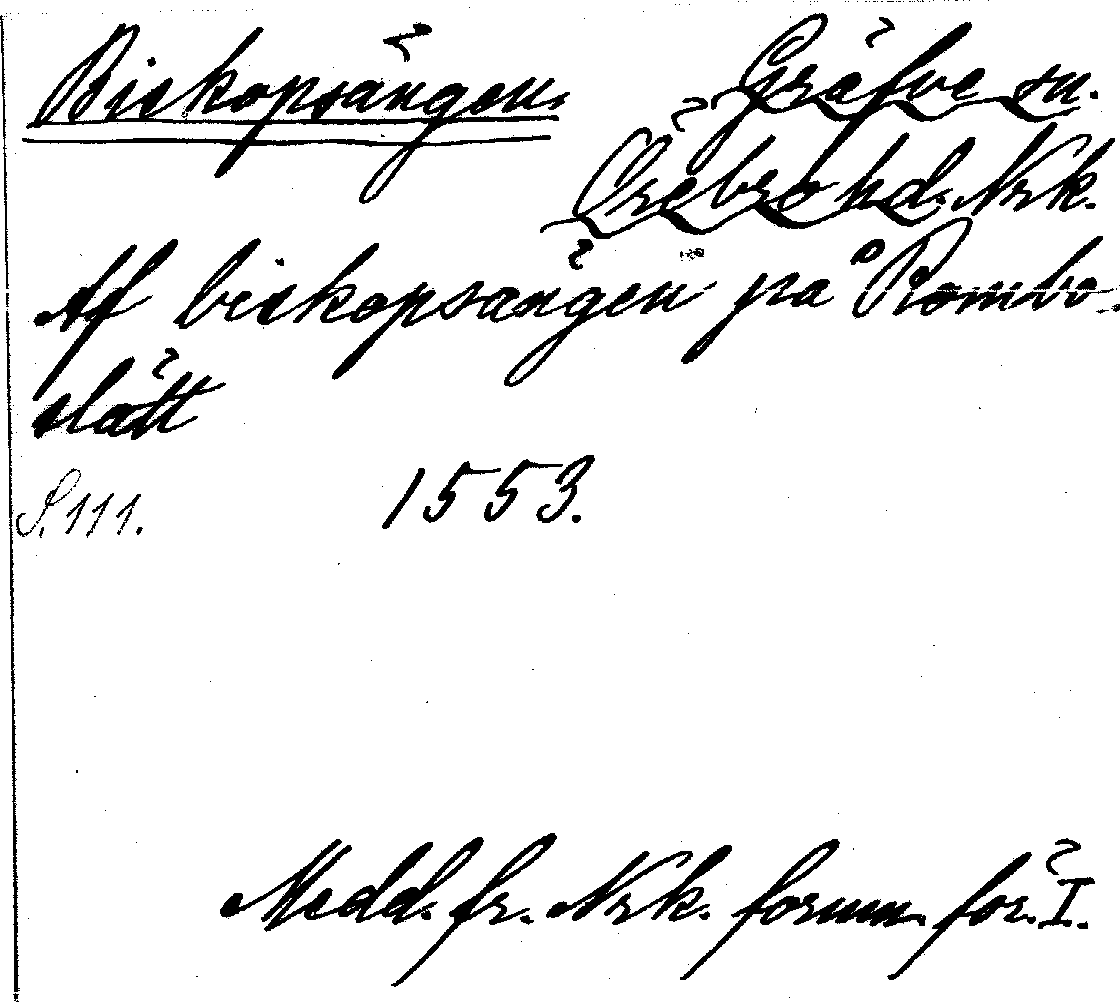 Biskopsängen.
Gräfve sn.
Örebro hd. Nrk.
Af biskopsängen på Rombo-
slätt
S. 111.
1553.
Medd. fr. Nrk. fornm. för. I.